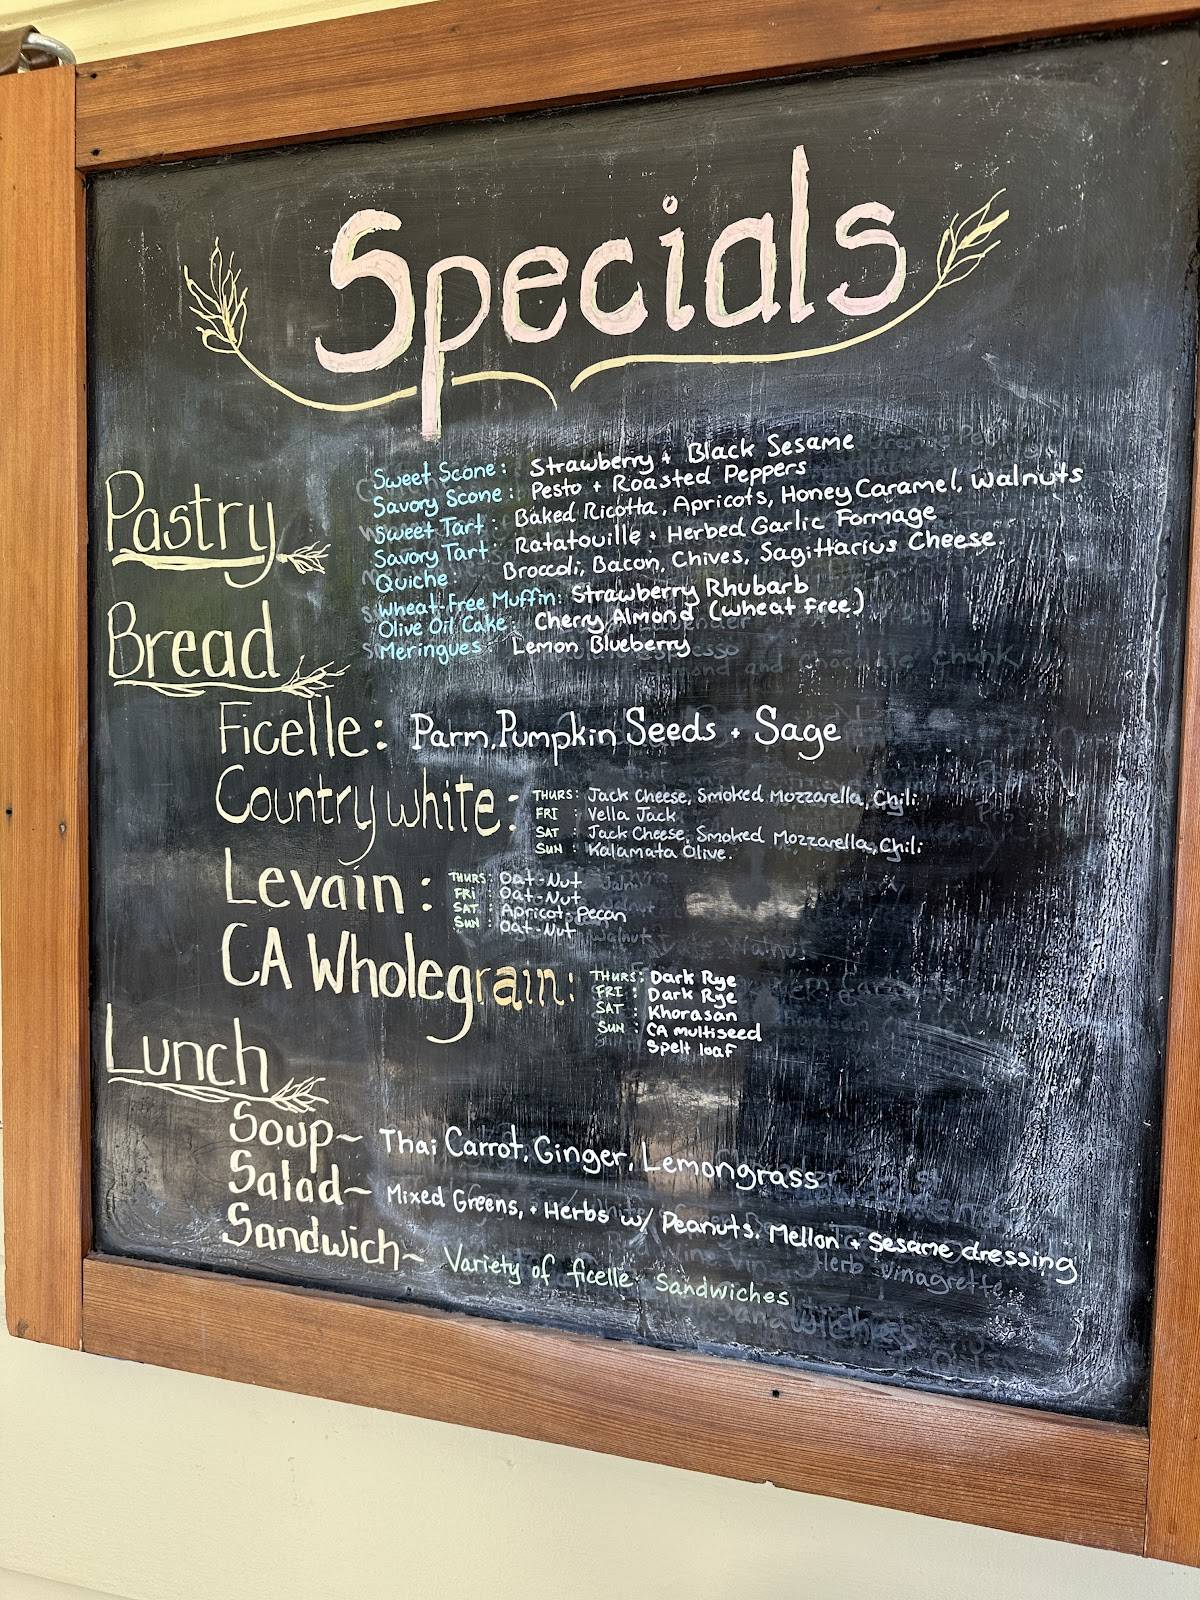 Specials
Pastry
Sweet Scone: Strawberry + Black Sesame
Savory Scone: Pesto + Roasted Peppers
Sweet Tart: Baked Ricotta, Apricots, Honey Caramel, Walnuts
Savory Tart: Ratatouille + Herbed Garlic Formage
Quiche: Broccoli, Bacon, Chives, Sagittarius Cheese.
Wheat-Free Muffin: Strawberry Rhubarb
Olive Oil Cake: Cherry Almond (wheat free)
Meringues: Lemon Blueberry
Bread
Ficelle: Parm, Pumpkin Seeds + Sage
Country white: THURS: Jack Cheese, Smoked Mozzarella, Chili
FRI : Vella Jack
SAT : Jack Cheese, Smoked Mozzarella, Chili
SUN : Kalamata Olive.
Levain: THURS: Oat-Nut
FRI : Oat-Nut
SAT : Apricot-Pecan
SUN : Oat-Nut
CA Wholegrain: THURS: Dark Rye
FRI : Dark Rye
SAT : Khorasan
SUN : CA multiseed
Spelt loaf
Lunch
Soup~ Thai Carrot, Ginger, Lemongrass
Salad~ Mixed Greens, + Herbs w/ Peanuts. Mellon + Sesame dressing
Sandwich~ Variety of ficelle sandwiches